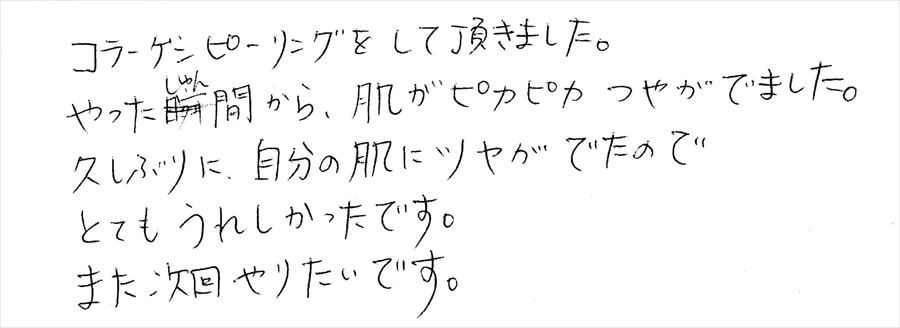 コラーゲンピーリングをして頂きました。
やった瞬間から、肌がピカピカつやがでました。
久しぶりに、自分の肌にツヤがでたので
とてもうれしかったです。
また次回やりたいです。